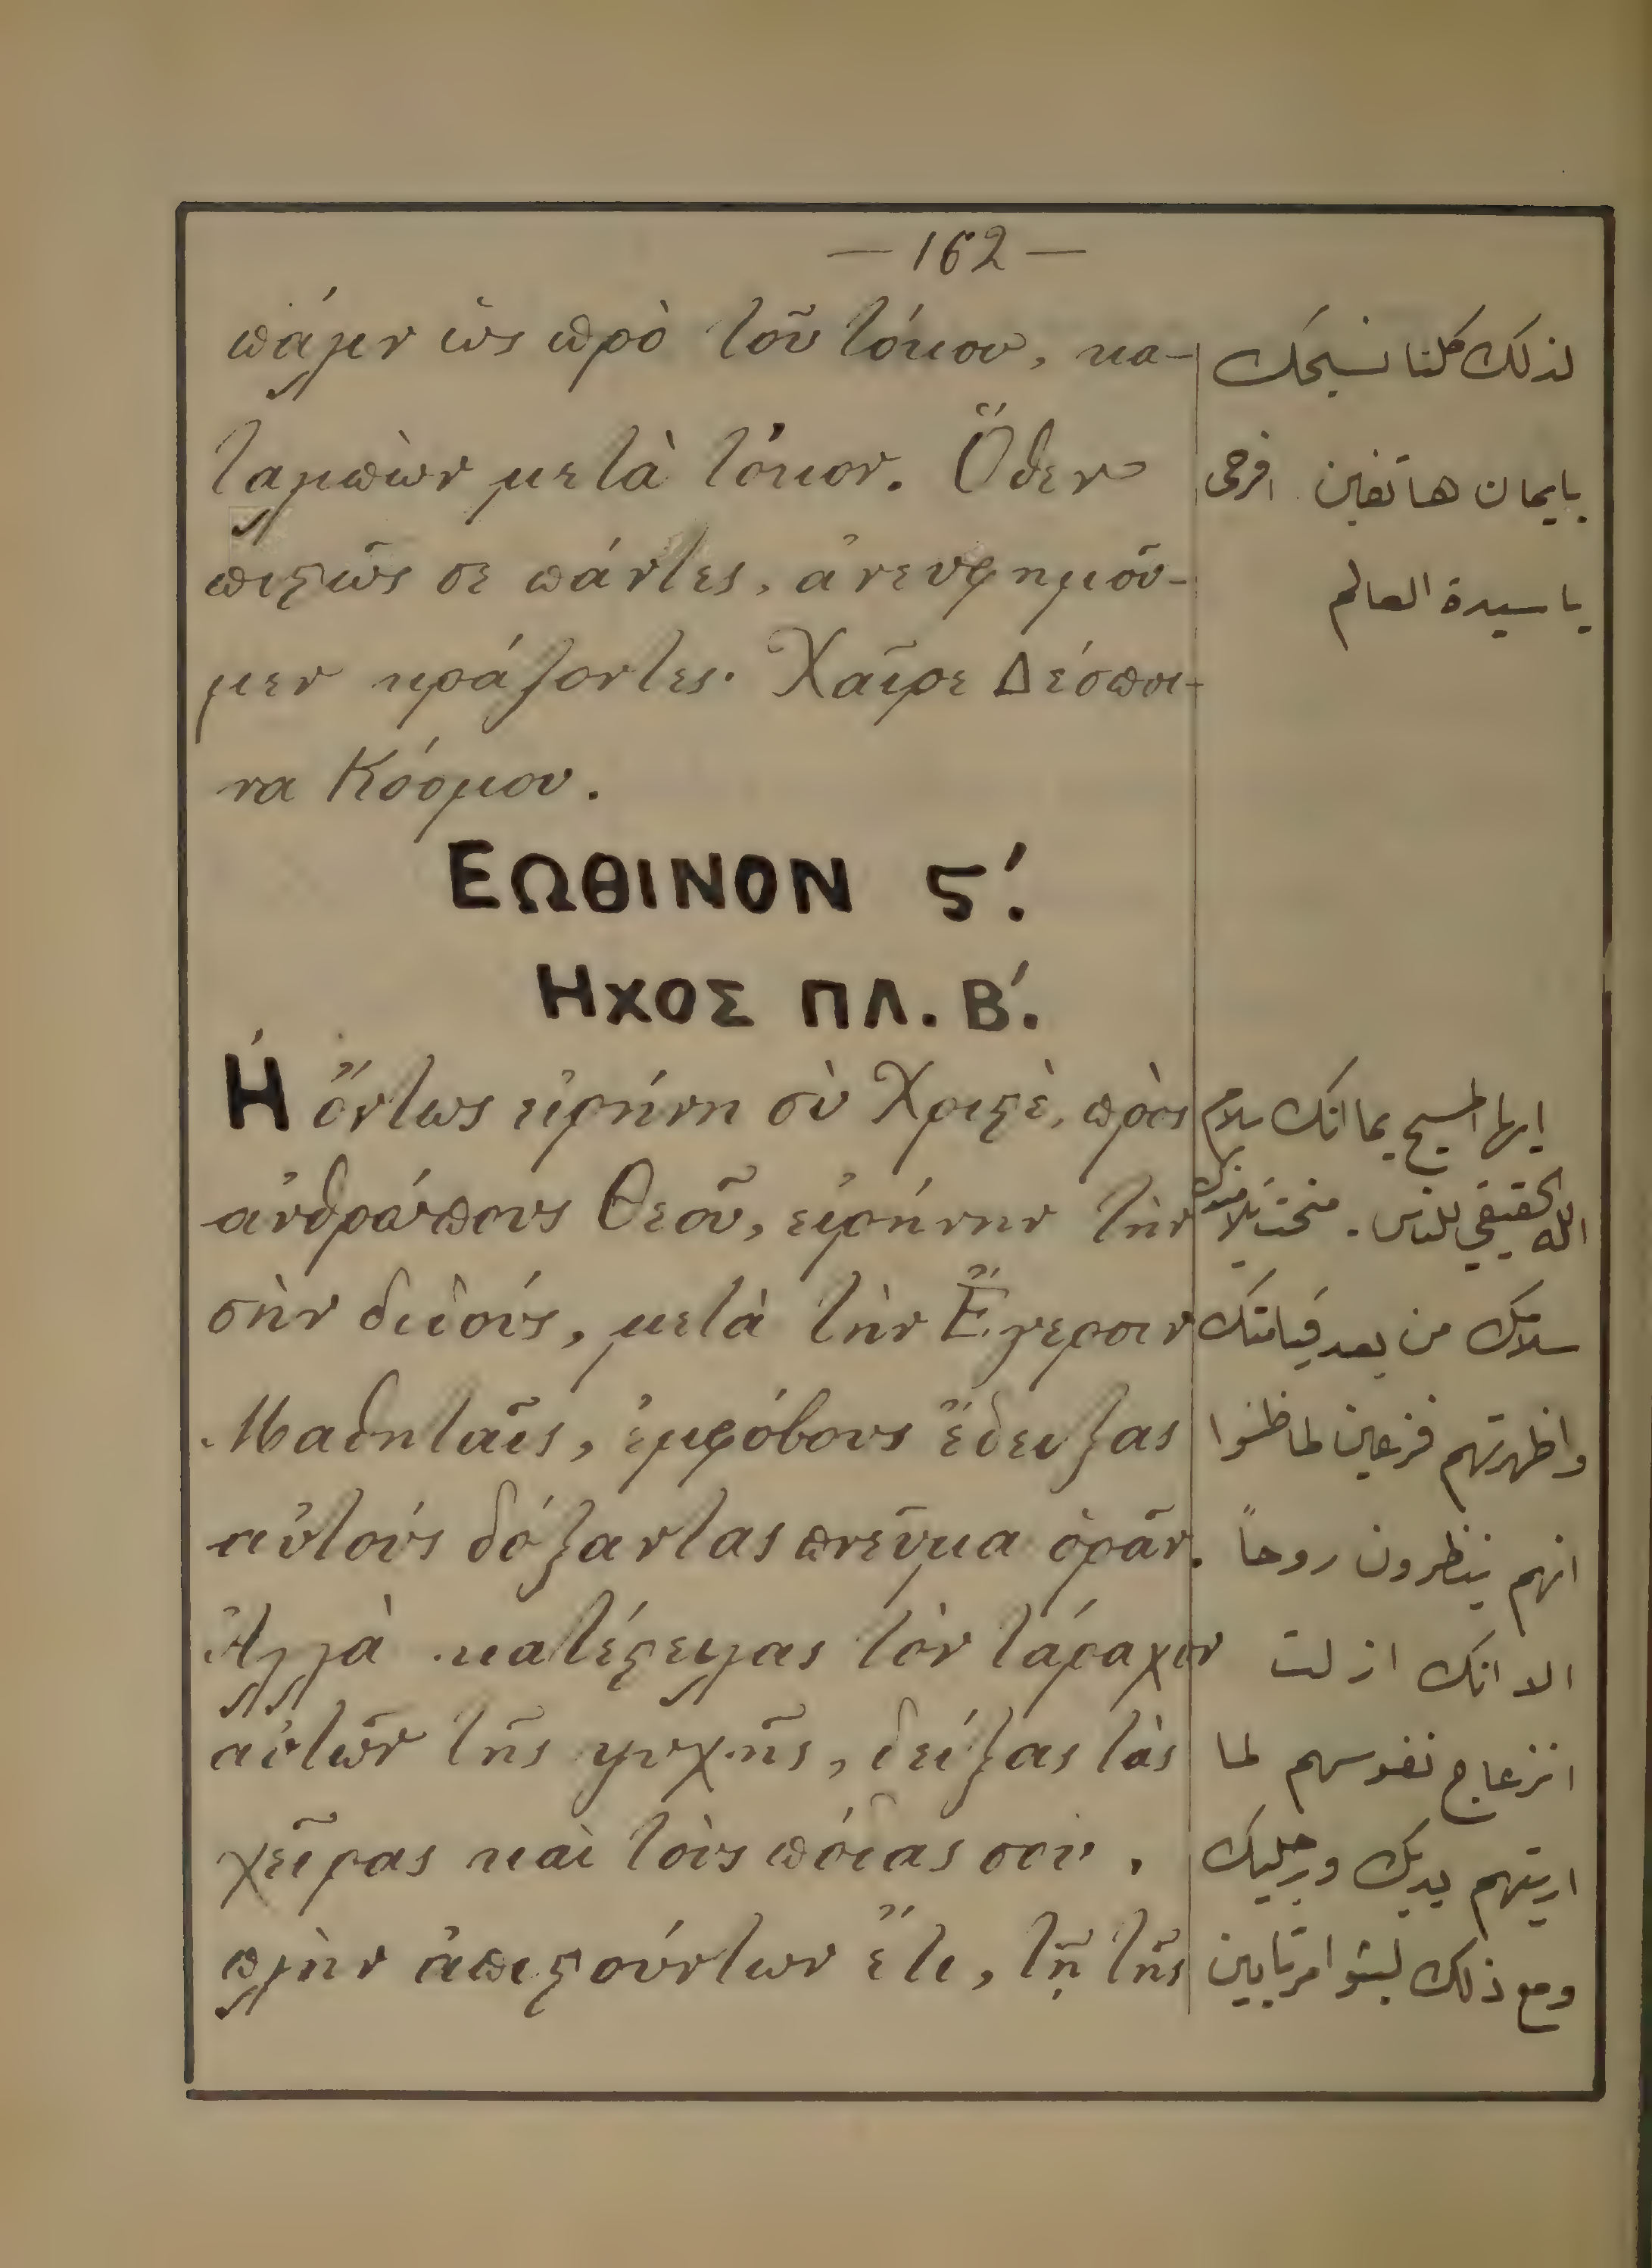 — 162 —
πάλιν ὡς πρὸ τοῦ τόκου, κα-
ταλιπὼν μετὰ τόκον. Ὅθεν
πιστῶς σε πάντες, ἀνευφημοῦ-
μεν κράζοντες· Χαῖρε Δέσποι-
να Κόσμου.
ΕΩΘΙΝΟΝ ς΄.
ΗΧΟΣ ΠΛ. Β΄.
Ἡ ὄντως εἰρήνη σὺ Χριστὲ, πρὸς
ἀνθρώπους Θεοῦ, εἰρήνην τὴν
σὴν διδούς, μετὰ τὴν Ἔγερσιν
Μαθηταῖς, ἐμφόβους ἔδειξας
αὐτοὺς δόξαντας πνεῦμα ὁρᾶν.
Ἀλλὰ κατέστειλας τὸν τάραχον
αὐτῶν τῆς ψυχῆς, δείξας τὰς
χεῖρας καὶ τοὺς πόδας σου.
πλὴν ἀπιστούντων ἔτι, τῇ τῆς
لذلك كلنا نسبحك
بايمان هاتفين افرحى
يا سيدة العالم
ايها المسيح بما انك سلام
الله الحقيقي للناس. منحت تلاميذك
سلامك من بعد قيامتك
واظهرتهم فزعين لما ظنوا
انهم ينظرون روحاً
الا انك ازلت
انزعاج نفوسهم لما
اريتهم يديك ورجليك
ومع ذلك لبثوا مرتابين